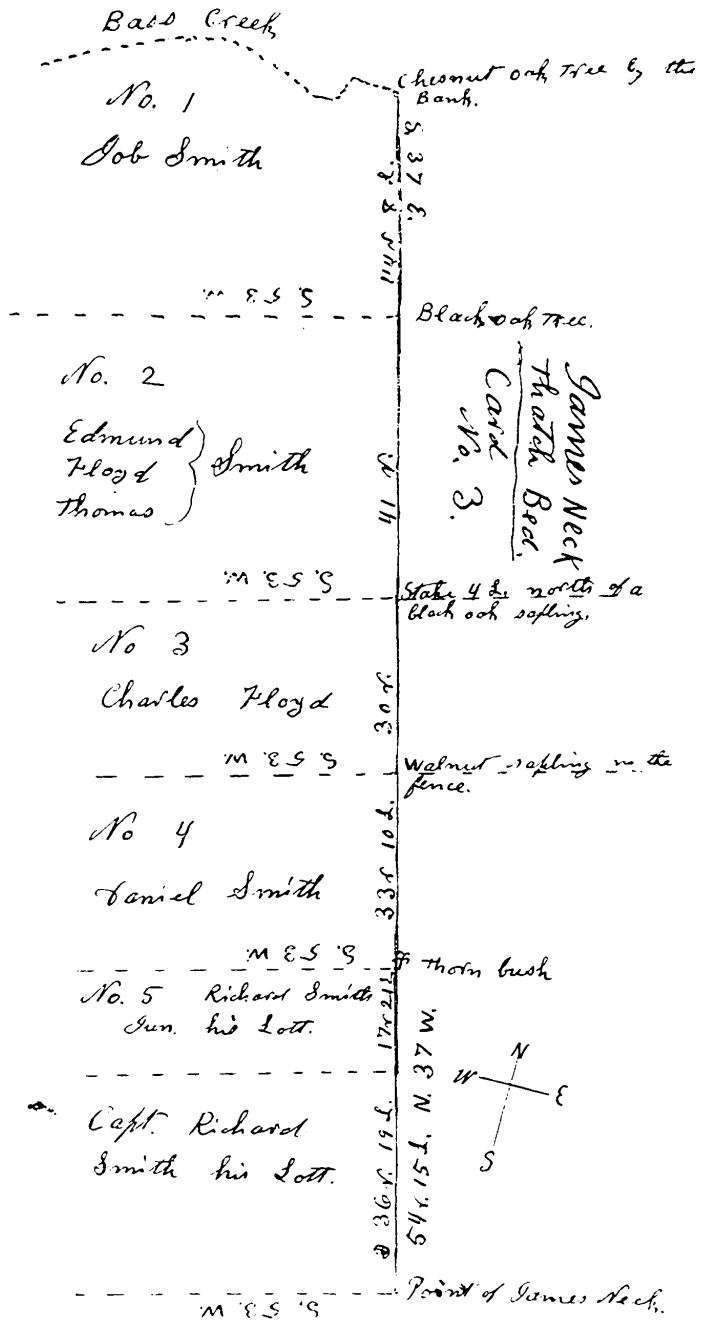 Bass Creek
Chesnut oak Tree by the
Bank.
No. 1
Job Smith
S. 37 E.
S. 53 W.
Black oak Tree.
No. 2
Edmund
Floyd
Thomas
Smith
41 r.
James Neck
Thatch Bed.
Card
No. 3.
S. 53. W.
Stake 4 L. north of a
black oak sapling.
No 3
Charles Floyd
30 r.
S. 53. W
Walnut sapling in the
fence.
No 4
Daniel Smith
33 r 10 L.
S. 53 W.
A thorn bush
No. 5 Richard Smith
Jun. his Lott.
17 r 21 L
54 r. 15 L. N. 37 W.
N
W
E
S
Capt. Richard
Smith his Lott.
36 r. 19 L.
Point of James Neck.
S. 53. W.